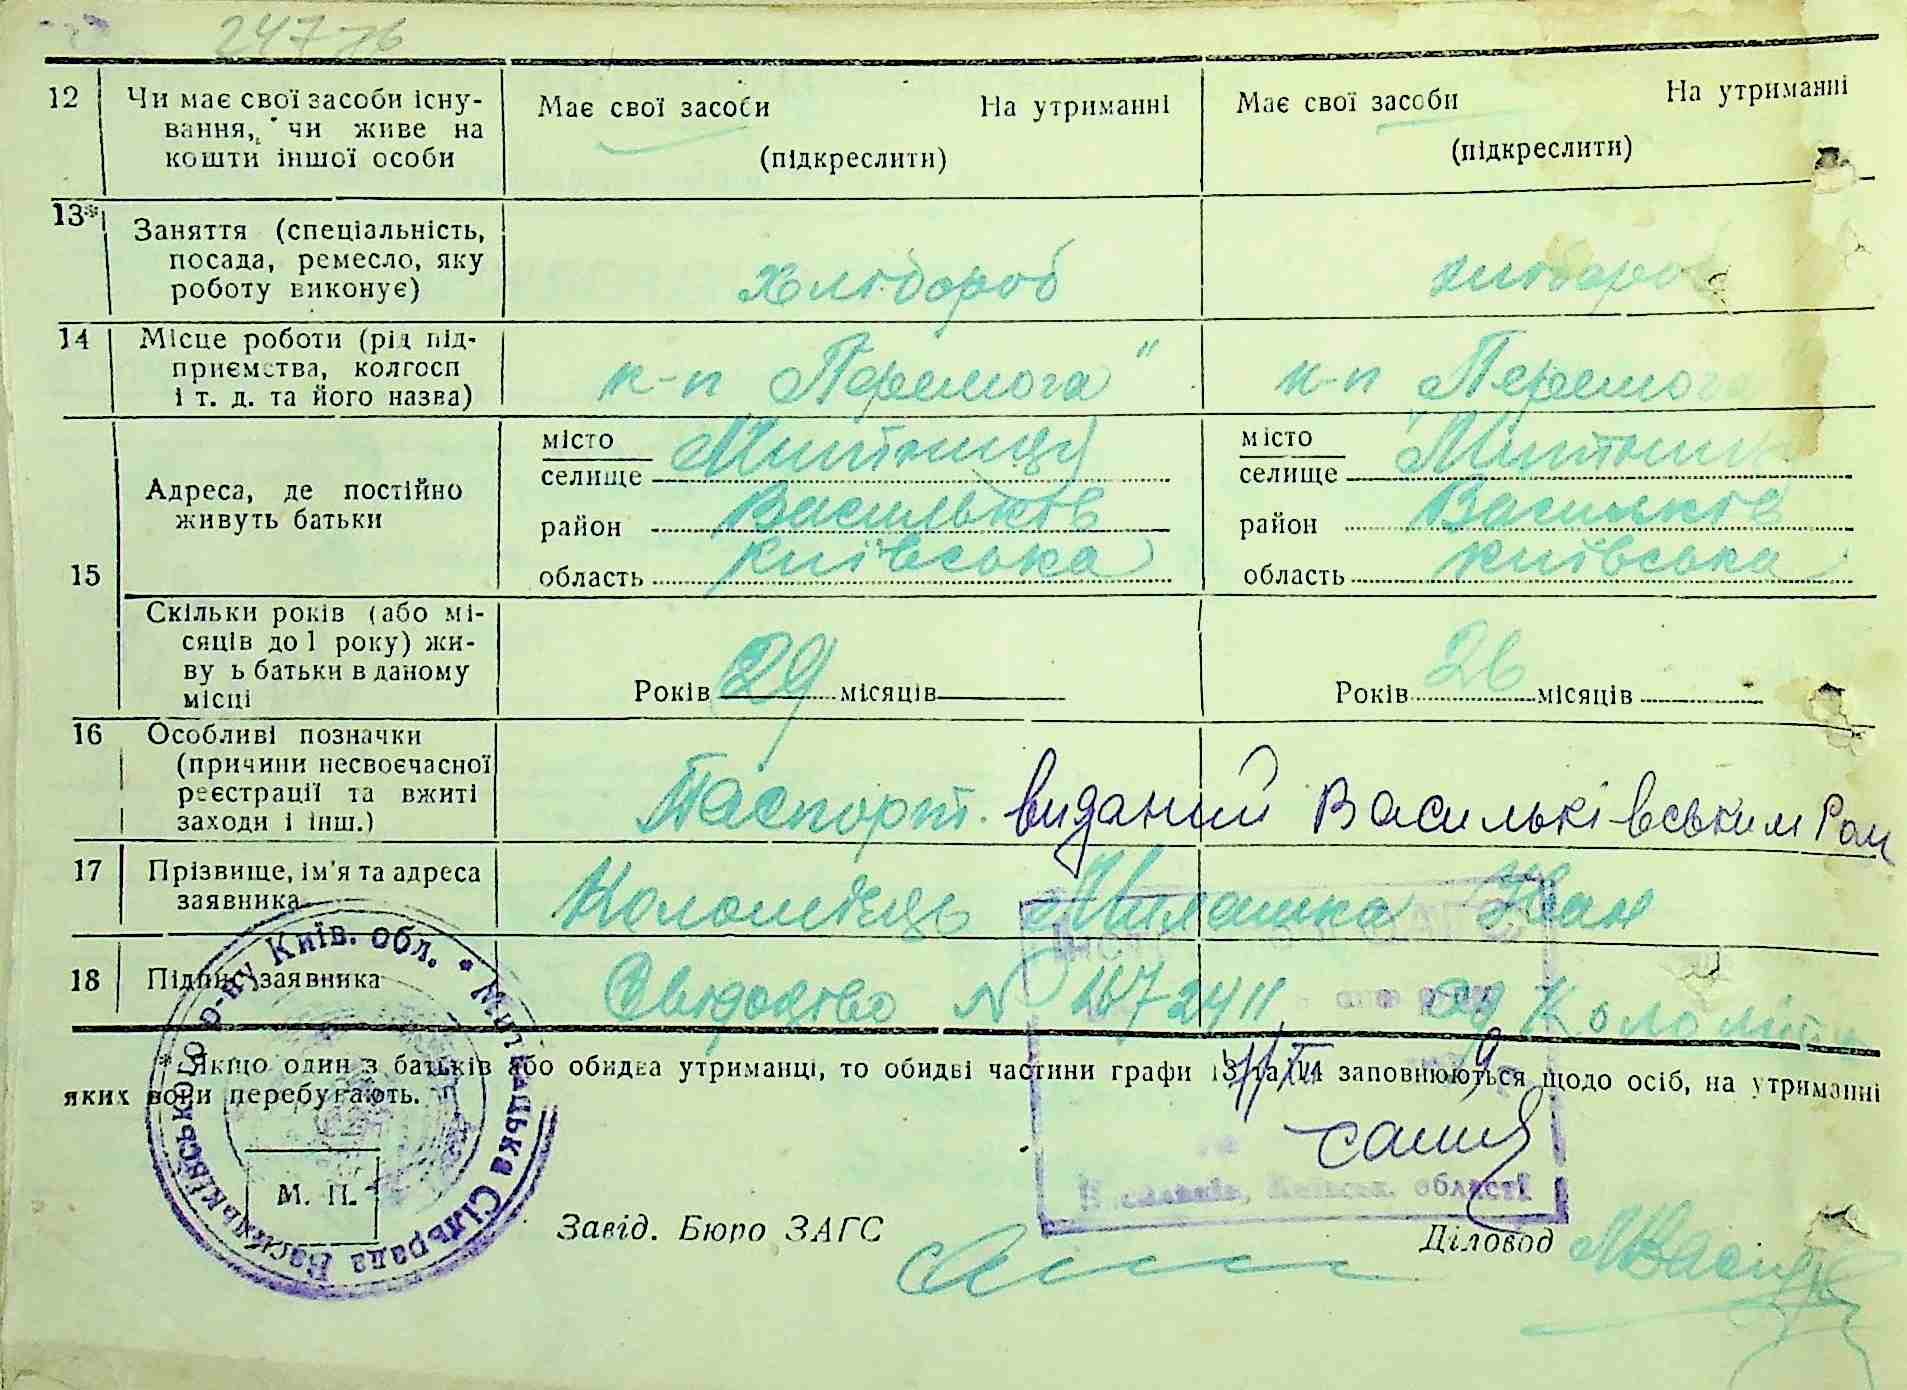 247 76
12 Чи має свої засоби існу-
вання, чи живе на
кошти іншої особи
Має свої засоби На утриманні
(підкреслити)
Має свої засоби На утриманні
(підкреслити)
13* Заняття (спеціальність,
посада, ремесло, яку
роботу виконує)
хлібороб
хлібороб
14 Місце роботи (рід під-
приємства, колгосп
і т. д. та його назва)
к-п Перемога"
к-п Перемога
15 Адреса, де постійно
живуть батьки
місто
селище Митниця
район Васильків
область київська
місто
селище Митниця
район Васильків
область київська
Скільки років (або мі-
сяців до 1 року) жи-
ву ь батьки в даному
місці
Років 29 місяців
Років 26 місяців
16 Особливі позначки
(причини несвоєчасної
реєстрації та вжиті
заходи і інш.)
Паспорт. виданий Васильківським
17 Прізвище, ім'я та адреса
заявника
Коломієць Милашка Іван
18 Підпис заявника
Свідоцтво N
* Якщо один з батьків або обидва утриманці, то обидві частини графи 13 та 14 заповнюються щодо осіб, на утриманні
яких вони перебувають.
Митницька Сільрада Васильківського р-ну Київ. обл. *
М. П.
Київськ. області
Завід. Бюро ЗАГС
Діловод